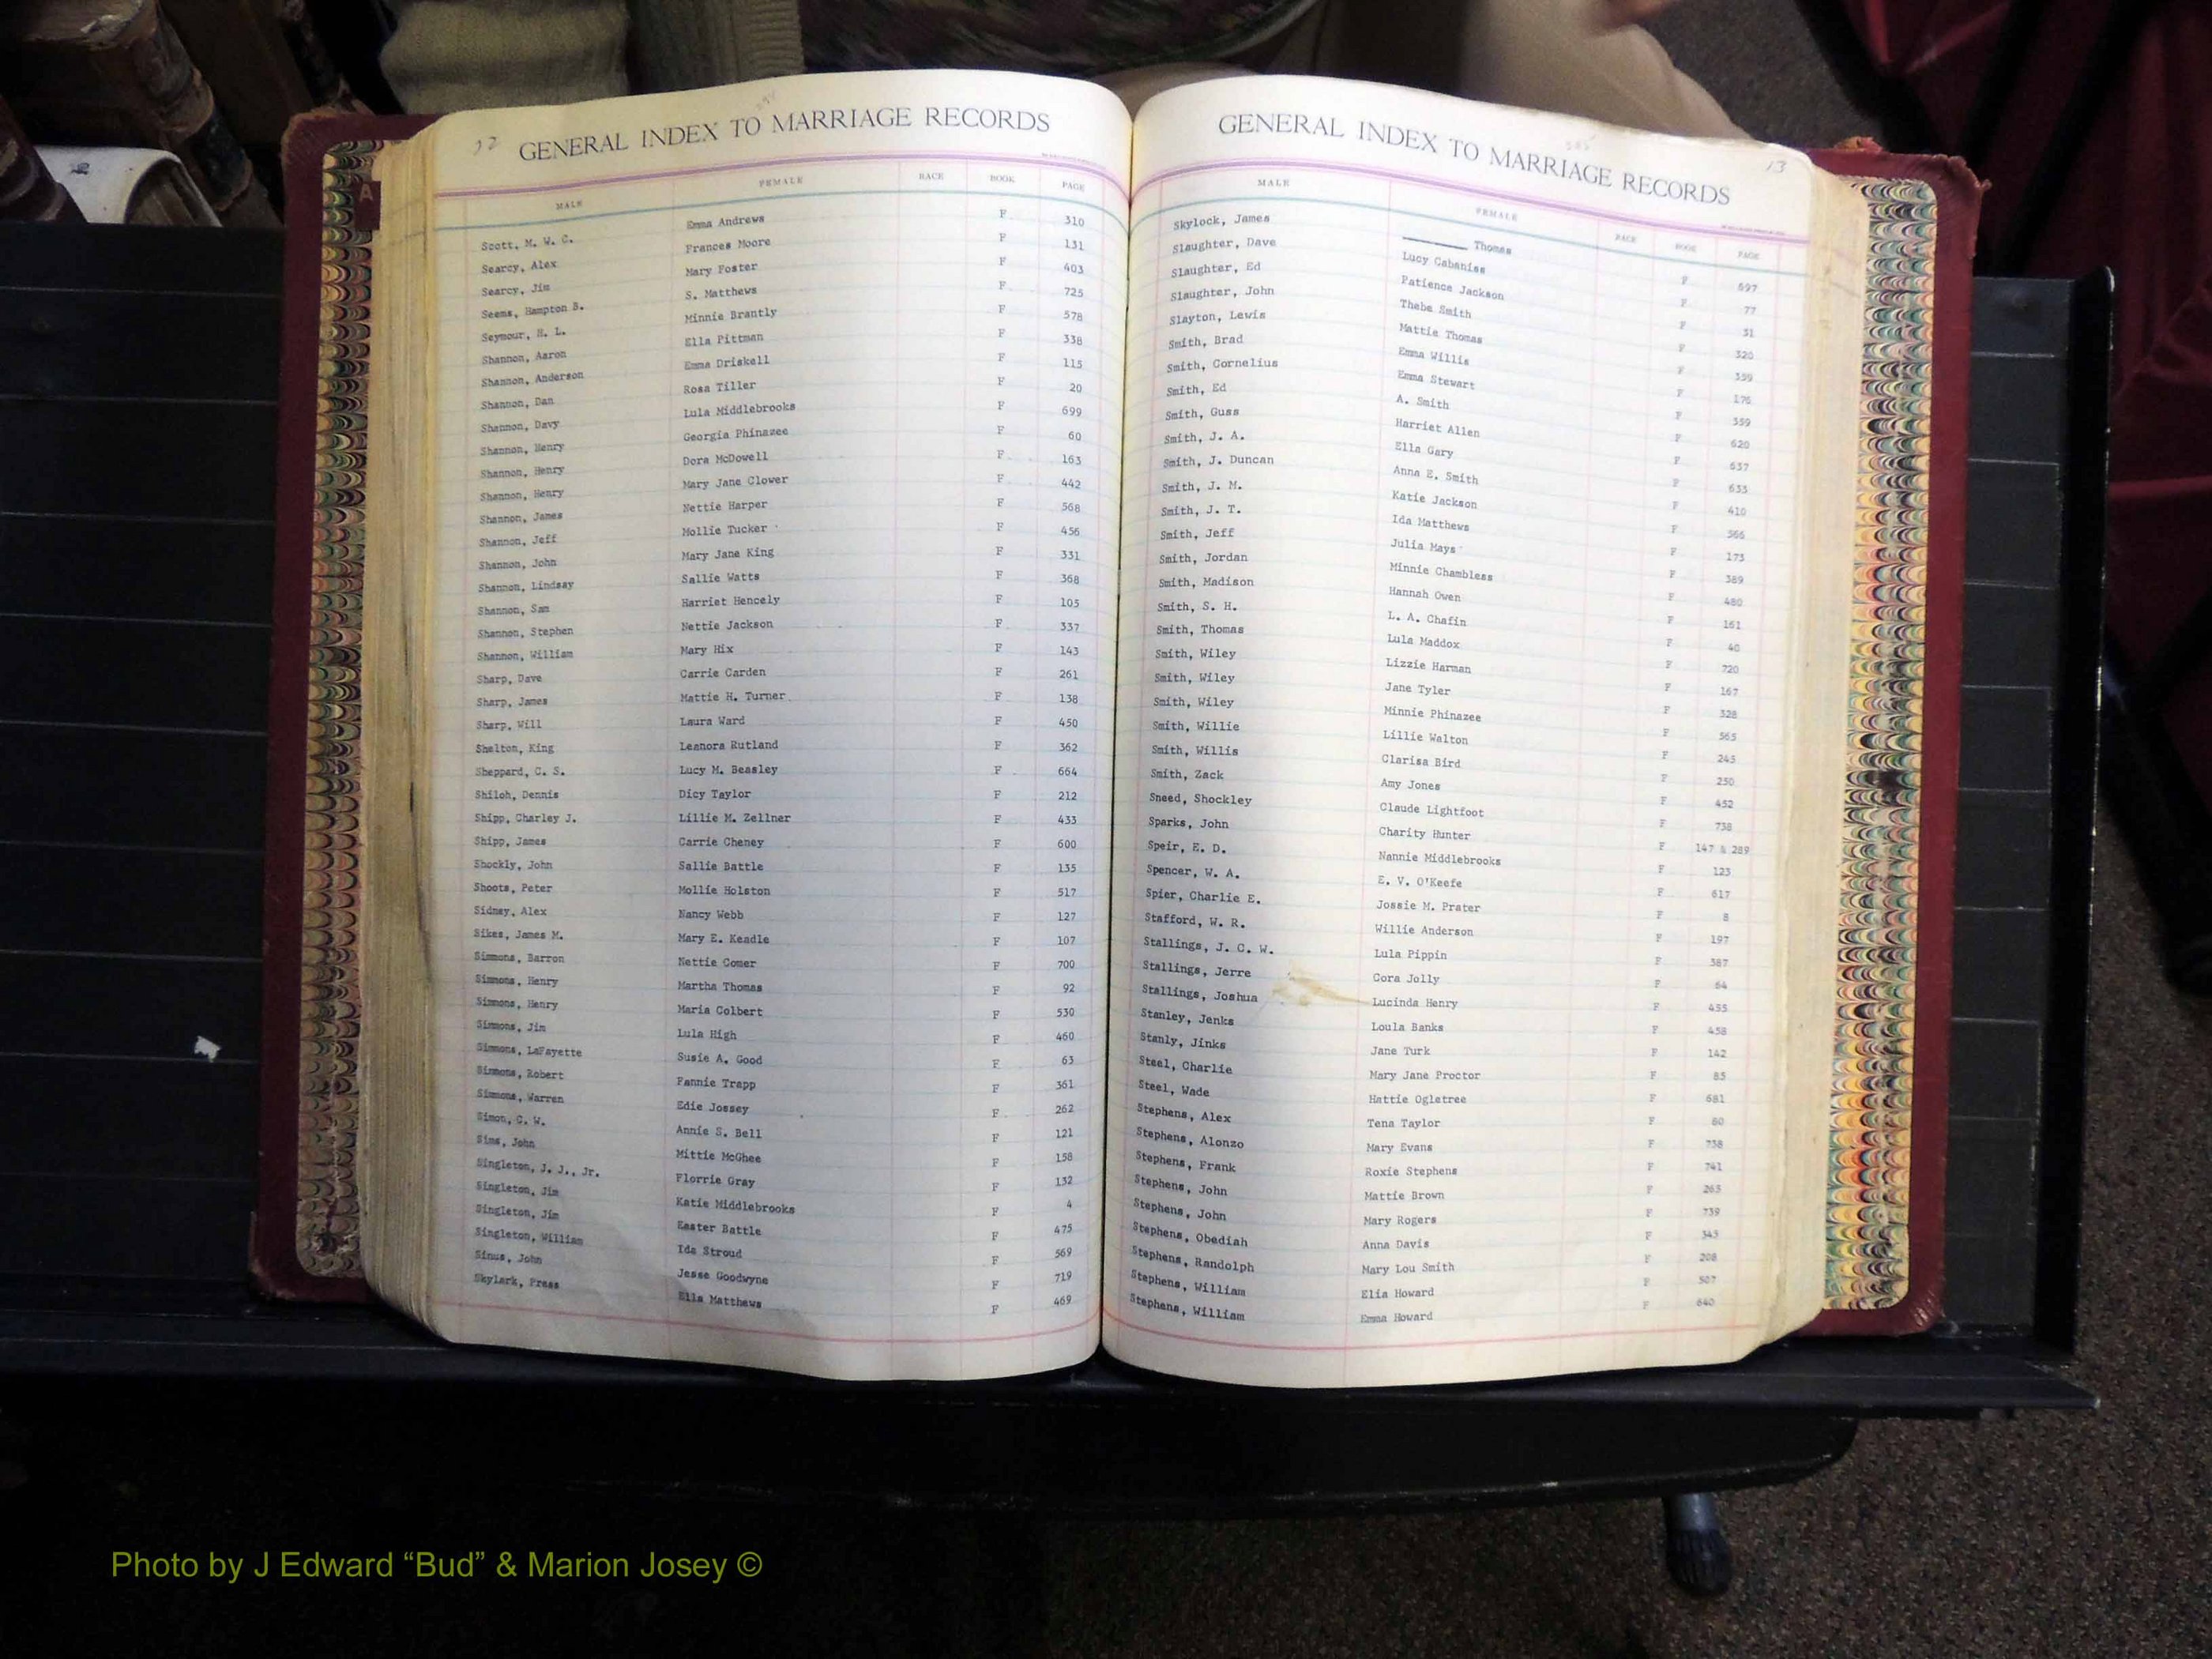 12 GENERAL INDEX TO MARRIAGE RECORDS
MALE FEMALE RACE BOOK PAGE
Scott, M. W. C. Emma Andrews F 310
Searcy, Alex Frances Moore F 131
Searcy, Jim Mary Foster F 403
Seems, Hampton B. S. Matthews F 725
Seymour, H. L. Minnie Brantly F 578
Shannon, Aaron Ella Pittman F 338
Shannon, Anderson Emma Driskell F 115
Shannon, Dan Rosa Tiller F 20
Shannon, Davy Lula Middlebrooks F 699
Shannon, Henry Georgia Phinazee F 60
Shannon, Henry Dora McDowell F 163
Shannon, Henry Mary Jane Clower F 442
Shannon, James Nettie Harper F 568
Shannon, Jeff Mollie Tucker F 456
Shannon, John Mary Jane King F 331
Shannon, Lindsay Sallie Watts F 368
Shannon, Sam Harriet Hencely F 105
Shannon, Stephen Nettie Jackson F 337
Shannon, William Mary Hix F 143
Sharp, Dave Carrie Carden F 261
Sharp, James Mattie H. Turner F 138
Sharp, Will Laura Ward F 450
Shelton, King Leanora Rutland F 362
Sheppard, C. S. Lucy M. Beasley F 664
Shiloh, Dennis Dicy Taylor F 212
Shipp, Charley J. Lillie M. Zellner F 433
Shipp, James Carrie Cheney F 600
Shockly, John Sallie Battle F 135
Shoots, Peter Mollie Holston F 517
Sidney, Alex Nancy Webb F 127
Sikes, James M. Mary E. Keadle F 107
Simmons, Barron Nettie Comer F 700
Simmons, Henry Martha Thomas F 92
Simmons, Henry Maria Colbert F 530
Simmons, Jim Lula High F 460
Simmons, LaFayette Susie A. Good F 63
Simmons, Robert Fannie Trapp F 361
Simmons, Warren Edie Jossey F 262
Simon, C. W. Annie S. Bell F 121
Sims, John Mittie McGhee F 158
Singleton, J. J., Jr. Florrie Gray F 132
Singleton, Jim Katie Middlebrooks F 4
Singleton, Jim Easter Battle F 475
Singleton, William Ida Stroud F 569
Sinus, John Jesse Goodwyne F 719
Skylark, Press Ella Matthews F 469
GENERAL INDEX TO MARRIAGE RECORDS 13
MALE FEMALE RACE BOOK PAGE
Skylock, James ______ Thomas F 697
Slaughter, Dave Lucy Cabaniss F 77
Slaughter, Ed Patience Jackson F 31
Slaughter, John Thebe Smith F 320
Slayton, Lewis Mattie Thomas F 359
Smith, Brad Emma Willis F 176
Smith, Cornelius Emma Stewart F 359
Smith, Ed A. Smith F 620
Smith, Guss Harriet Allen F 637
Smith, J. A. Ella Gary F 633
Smith, J. Duncan Anna E. Smith F 410
Smith, J. M. Katie Jackson F 566
Smith, J. T. Ida Matthews F 173
Smith, Jeff Julia Mays F 389
Smith, Jordan Minnie Chambless F 480
Smith, Madison Hannah Owen F 161
Smith, S. H. L. A. Chafin F 40
Smith, Thomas Lula Maddox F 720
Smith, Wiley Lizzie Harman F 167
Smith, Wiley Jane Tyler F 328
Smith, Wiley Minnie Phinazee F 565
Smith, Willie Lillie Walton F 245
Smith, Willis Clarisa Bird F 250
Smith, Zack Amy Jones F 452
Sneed, Shockley Claude Lightfoot F 738
Sparks, John Charity Hunter F 147 & 289
Speir, E. D. Nannie Middlebrooks F 123
Spencer, W. A. E. V. O'Keefe F 617
Spier, Charlie E. Jossie M. Prater F 8
Stafford, W. R. Willie Anderson F 197
Stallings, J. C. W. Lula Pippin F 387
Stallings, Jerre Cora Jolly F 64
Stallings, Joshua Lucinda Henry F 455
Stanley, Jenks Loula Banks F 458
Stanly, Jinks Jane Turk F 142
Steel, Charlie Mary Jane Proctor F 85
Steel, Wade Hattie Ogletree F 681
Stephens, Alex Tena Taylor F 60
Stephens, Alonzo Mary Evans F 738
Stephens, Frank Roxie Stephens F 741
Stephens, John Mattie Brown F 265
Stephens, John Mary Rogers F 739
Stephens, Obediah Anna Davis F 345
Stephens, Randolph Mary Lou Smith F 208
Stephens, William Elia Howard F 507
Stephens, William Emma Howard F 640
Photo by J Edward “Bud” & Marion Josey ©